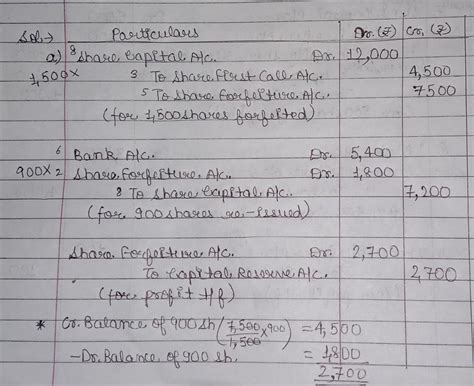 Sol:→ Particulars Dr. (₹) Cr. (₹)
a) 8 Share Capital A/c. Dr. 12,000
1,500× 3 To Share First Call A/c. 4,500
5 To Share Forfeiture A/c. 7500
(for 1,500 shares forfeited)
6 Bank A/c. Dr. 5,400
900× 2 Share Forfeiture A/c. Dr. 1,800
8 To Share Capital A/c. 7,200
(for 900 shares re-issued)
Share Forfeiture A/c Dr. 2,700
To Capital Reserve A/c. 2,700
(for profit t/f)
* Cr. Balance of 900 sh (7,500/1,500 × 900) = 4,500
– Dr. Balance of 900 sh. = 1,800
2,700